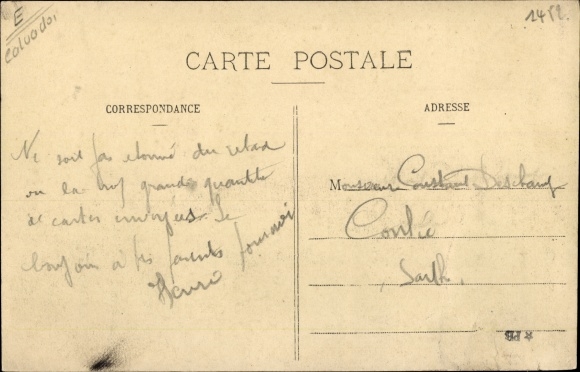 E
Calvados
2452
CARTE POSTALE
CORRESPONDANCE
Ne soit pas etonné du retard
ou la grande quantité
de cartes envoyées. Le
bonjour a tes parents pour moi
Henri
ADRESSE
Monsieur Constant Deschamp
Conlie
Sarthe